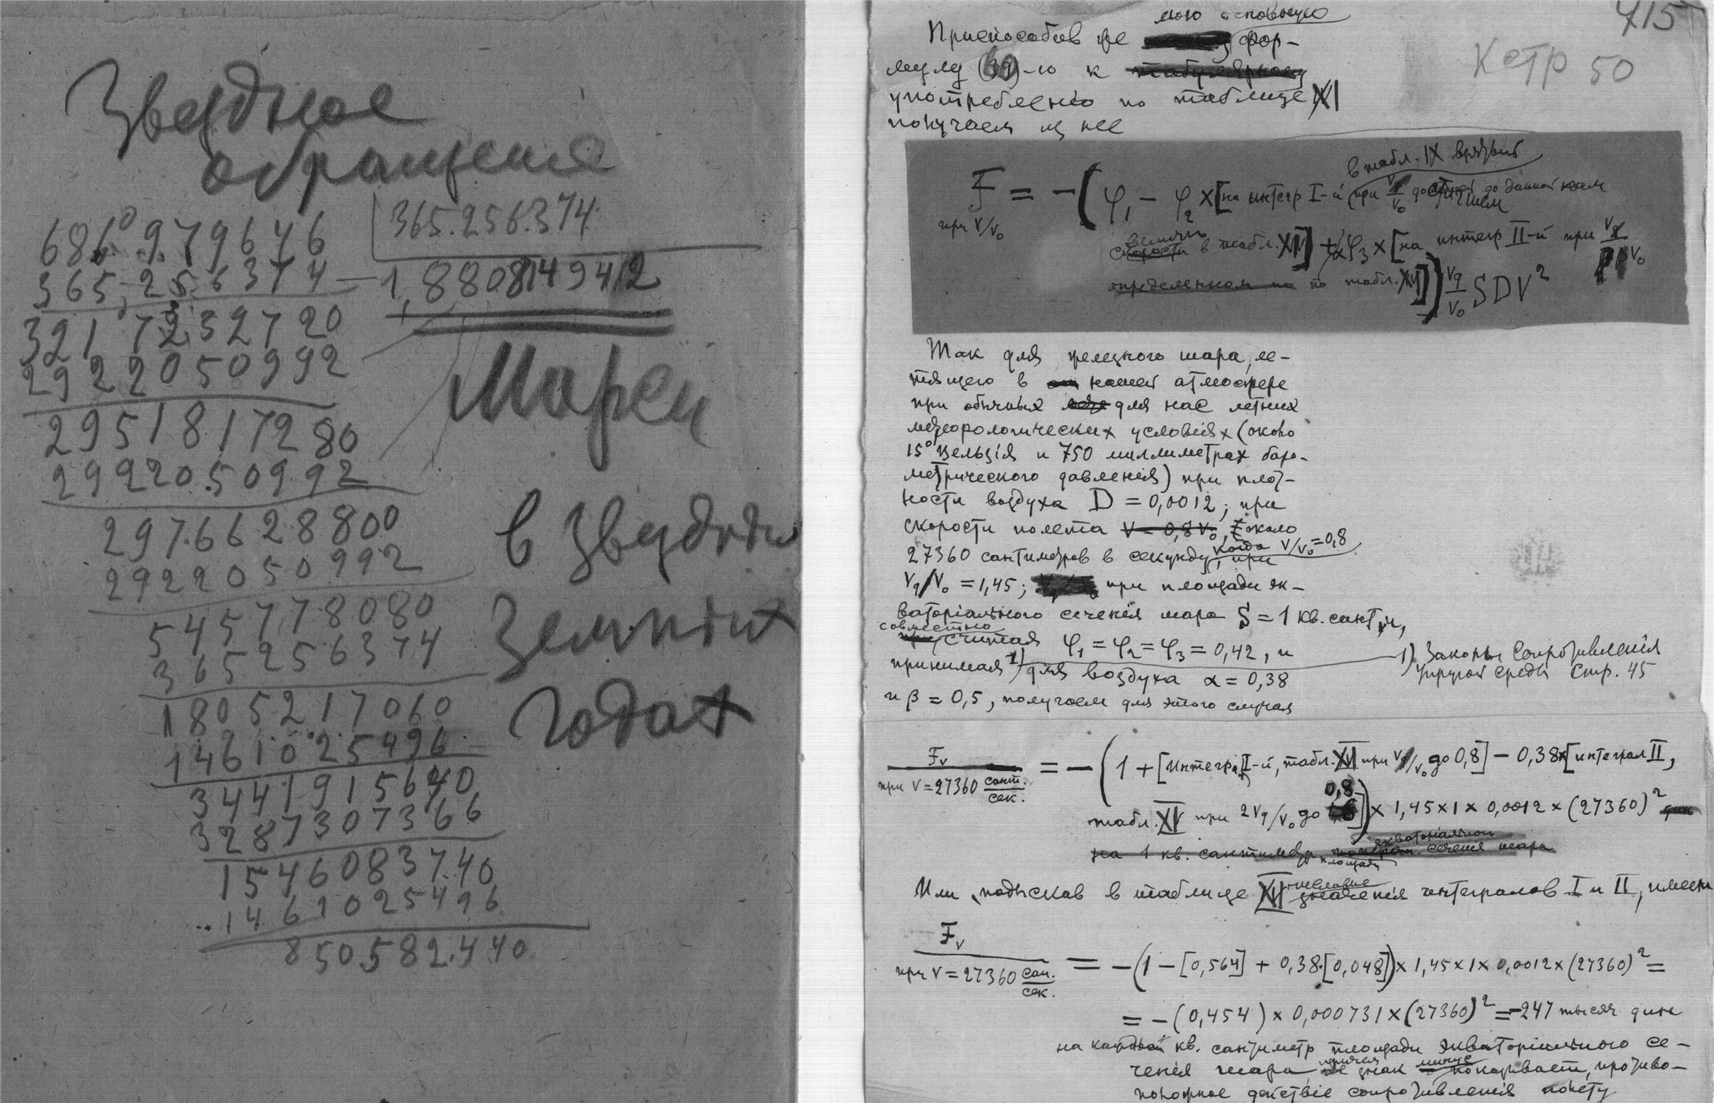 Звездное
обращение
686,979676
365.256.374
365,256374
1,8808149412
321 72332720
29 22050992
Марса
2951817280
2922050992
в звездных
2976628800
2922050992
земных
545778080
365256374
годах
1805217060
1461025496
3441915640
3287307366
1546083740
1461025496
850.582.440
415
мою основную
Приспособив же фор-
мулу (39)-ю к
употреблению по таблице XI
получаем из нее
К стр 50
в табл. IX
F = -(φ₁ - φ₂ × [на интегр I-й (при V/V₀ до
при V/V₀
в табл. XI] + φ₃ × [на интегр II-й при
по табл. XI]) Vq/V₀ SDV²
Так для шара, ле-
тящего в нашей атмосфере
при обычных для нас летних
метеорологических условиях (около
15° Цельсія и 750 миллиметрах баро-
метрического давленія) при плот-
ности воздуха D = 0,0012; при
скорости полета V = 0,8 V₀, около
27360 сантиметров в секунду, когда V/V₀ = 0,8
Vq/V₀ = 1,45; при площади эк-
ваторіального сеченія шара S = 1 кв. сантм,
совместно
считая φ₁ = φ₂ = φ₃ = 0,42, и
принимая 1) для воздуха α = 0,38
и β = 0,5, получаем для этого случая
1) Законы сопротивленія
упругой среды стр. 45
Fv
при V = 27360 сант./сек. = -(1 + [Интегр. I-й, табл. XI при V/V₀ до 0,8] - 0,38 × [интеграл II,
табл. XI при 2Vq/V₀ до 0,8]) × 1,45 × 1 × 0,0012 × (27360)²
на 1 кв. сантиметр площади экваторіальной сеченія шара
Или, подыскав в таблице XI значенія интегралов I и II, имеем
Fv
при V = 27360 сан./сек. = -(1 - [0,564] + 0,38·[0,048]) × 1,45 × 1 × 0,0012 × (27360)² =
= -(0,454) × 0,000731 × (27360)² = -247 тысяч дин
на каждый кв. сантиметр площади экваторіального се-
ченія шара причем знак минус показывает, противо-
положное действіе сопротивленія полету